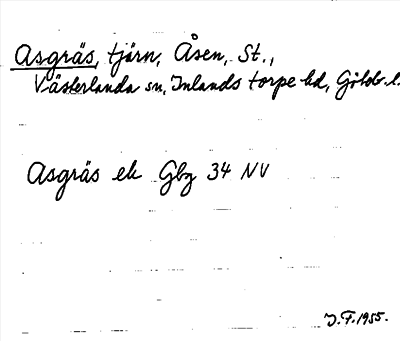 Asgräs, tjärn, Åsen, St.,
Västerlanda sn, Inlands torpe hd, Götebr. l.
Asgräs ek Gbg 34 NV
J.F. 1955.